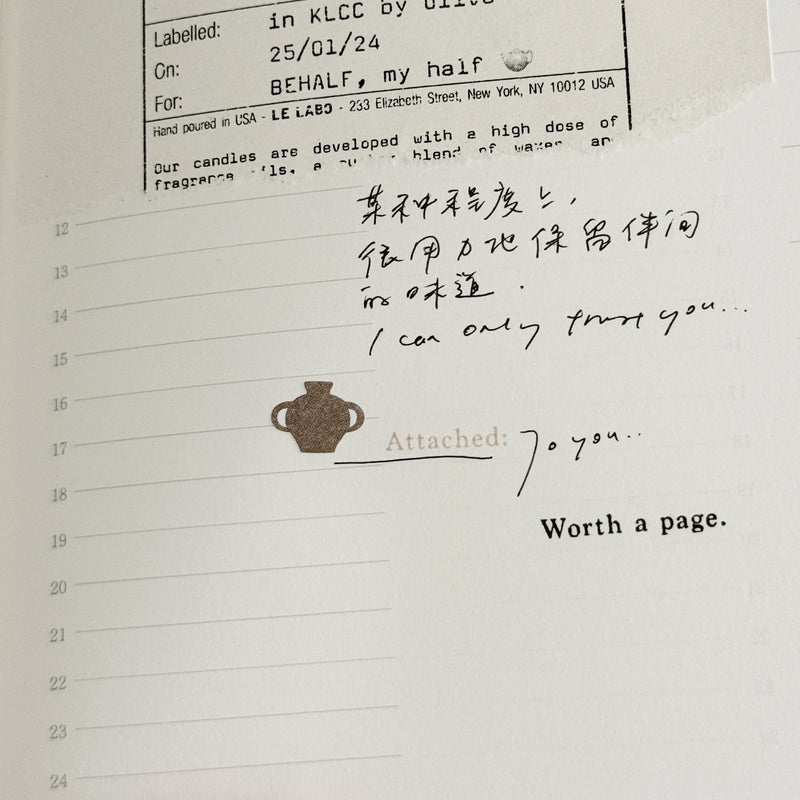 Labelled: in KLCC by Olive
On: 25/01/24
For: BEHALF, my half
Hand poured in USA - LE LABO - 233 Elizabeth Street, New York, NY 10012 USA
Our candles are developed with a high dose of
fragrance oils, a blend of waxes an
12
某种程度上,
13
很用力地保留伴间
14
的味道.
15
I can only trust you...
16
17
Attached: To you..
18
Worth a page.
19
20
21
22
23
24